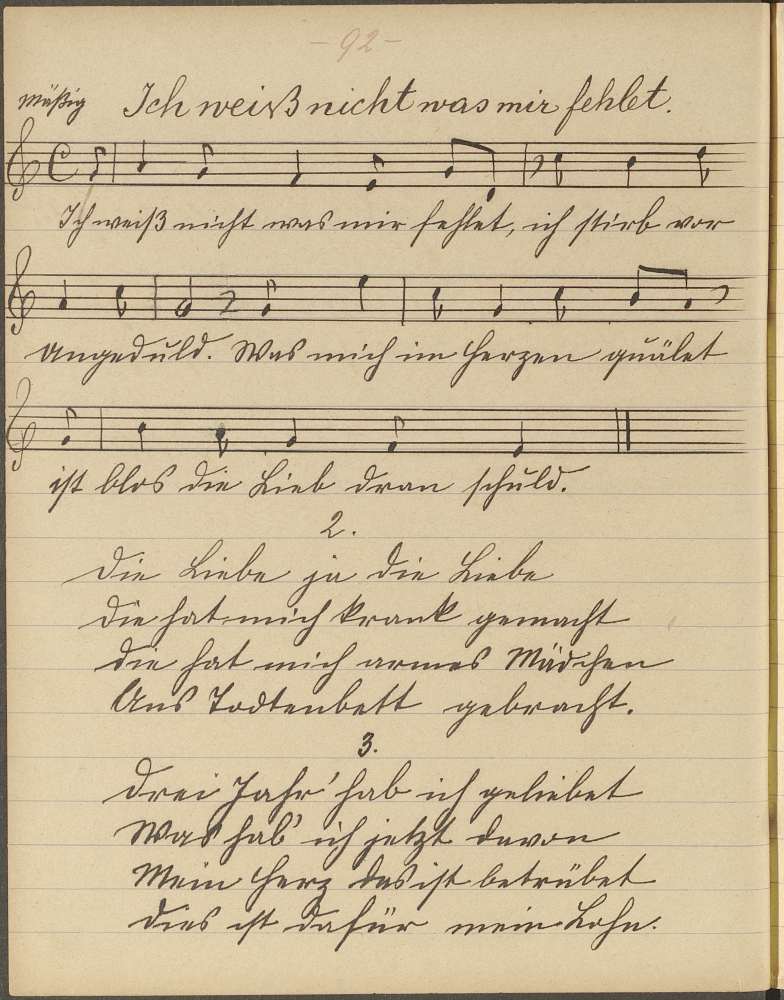 - 92 -
Mäßig Ich weiß nicht was mir fehlet.
Ich weiß nicht was mir fehlet, ich stirb vor
Ungeduld. Was mich im Herzen quälet
ist blos die Lieb dran schuld.
2.
Die Liebe ja die Liebe
Die hat mich krank gemacht
Die hat mich armes Mädchen
Ans Todtenbett gebracht.
3.
Drei Jahr' hab ich geliebet
Was hab' ich jetzt davon
Mein Herz das ist betrübet
Dies ist dafür mein Lohn.